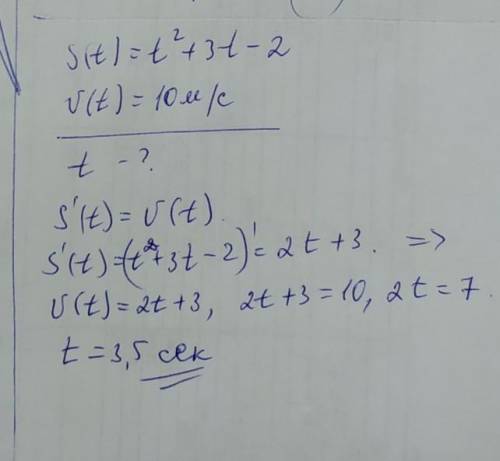 S(t) = t² + 3t - 2
υ(t) = 10 м/с
t - ?
S'(t) = υ(t).
S'(t) = (t² + 3t - 2)' = 2t + 3. =>
υ(t) = 2t + 3, 2t + 3 = 10, 2t = 7.
t = 3,5 сек